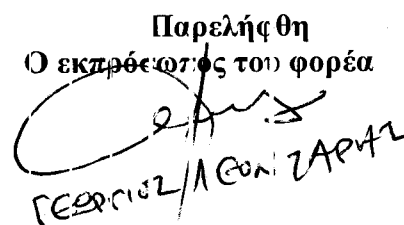 Παρελήφθη
Ο εκπρόσωπος του φορέα
ΓΕΩΡΓΙΟΣ